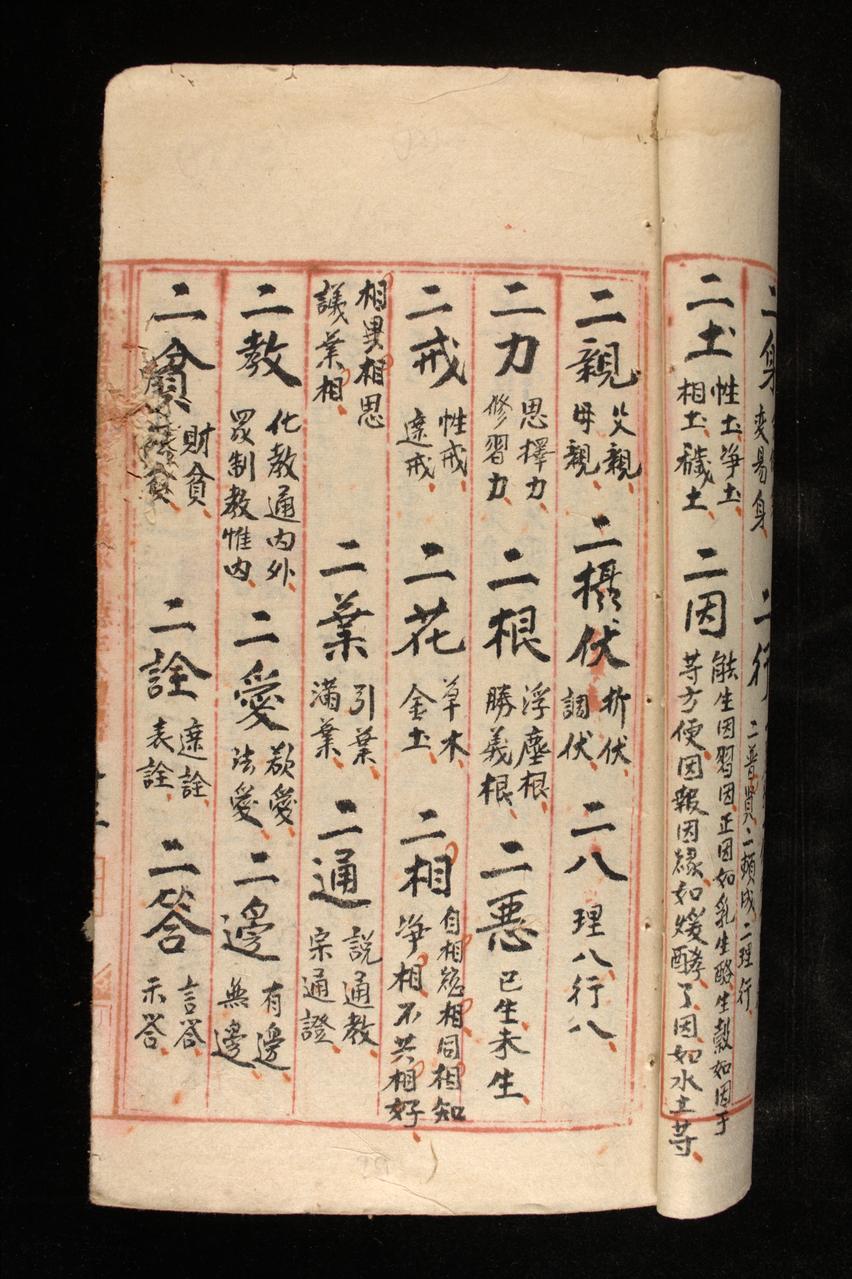 二身 変易身 二行 二普賢二頓成二理行
二土 性土淨土相土穢土 二因 能生因習因正因如乳生酪生穀如因子等方便因報因緣如煖酵了因如水土等
二親 父親母親 二攝伏 折伏調伏 二八 理八行八
二力 思擇力修習力 二根 浮塵根勝義根 二悪 已生未生
二戒 性戒遮戒 二花 草木金土 二相 自相總相同相知淨相不共相好
相異相思議業相 二業 引業滿業 二通 說通教宗通證
二教 化教通内外眾制教惟内 二愛 欲愛法愛 二邊 有邊無邊
二貧 財貧 二詮 遮詮表詮 二答 言答示答